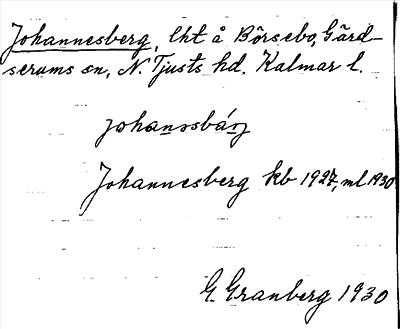 Johannesberg, lht å Börsebo, Gärd-
serums sn, N. Tjusts hd. Kalmar l.
Johannesberg kb 1927, ml 1930
G. Granberg 1930